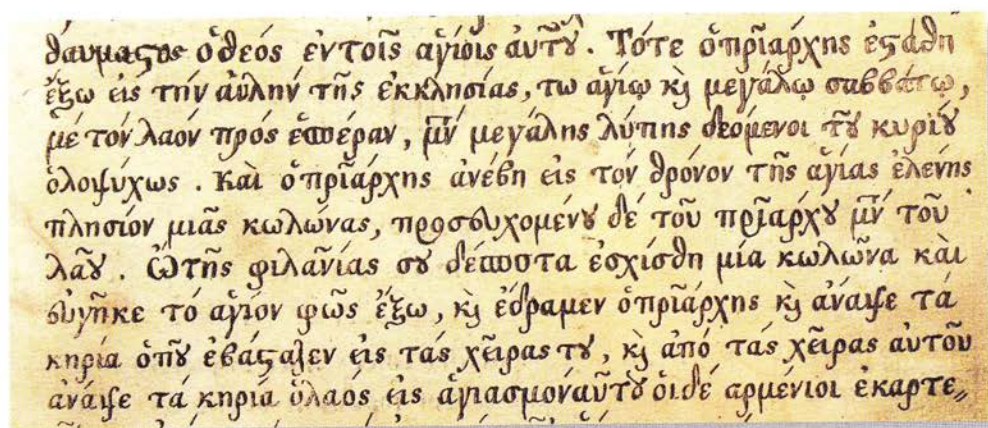 θαυμαςος ὁθεός εντοῖς ἁγίοις ἀυτȣ͂. Τότε ὁπρῖαρχης εςάθη
ἔξω εἰς τήν ἀυλήν τῆς ἐκκλησίας, τω ἁγίῳ κ̀ μεγάλῳ σαββάτῳ,
μέ τόν λαόν πρός ἑσπέραν, μ̅ν̅ μεγάλης λύπης δεόμενοι τȣ͂ κυρίȣ
ὁλοψύχως. Καὶ ὁπρῖαρχης ἀνέβη εἰς τόν θρόνον τῆς ἁγίας ἑλένης
πλησίον μιᾶς κωλώνας, προσευχομένȣ δέ τοῦ πρῖάρχȣ μ̅ν̅ τοῦ
λαȣ͂. Ὢτῆς φιλανίας σȣ δέσποτα ἐσχίσθη μία κωλῶνα κὰι
ευγῆκε τό ἅγιον φῶς ἔξω, κ̀ έδραμεν ὁπρῖάρχης κ̀ ἄναψε τά
κηρία ὁπȣ͂ ἐβάςαζεν εἰς τάς χεῖρας τȣ, κ̀ ἀπό τάς χεῖρας ἀυτοῦ
ἀναψε τά κηρία ὁλαός εἰς ἁγιασμόναὑτȣ͂ ὁιδέ αρμένιοι ἐκαρτε〃